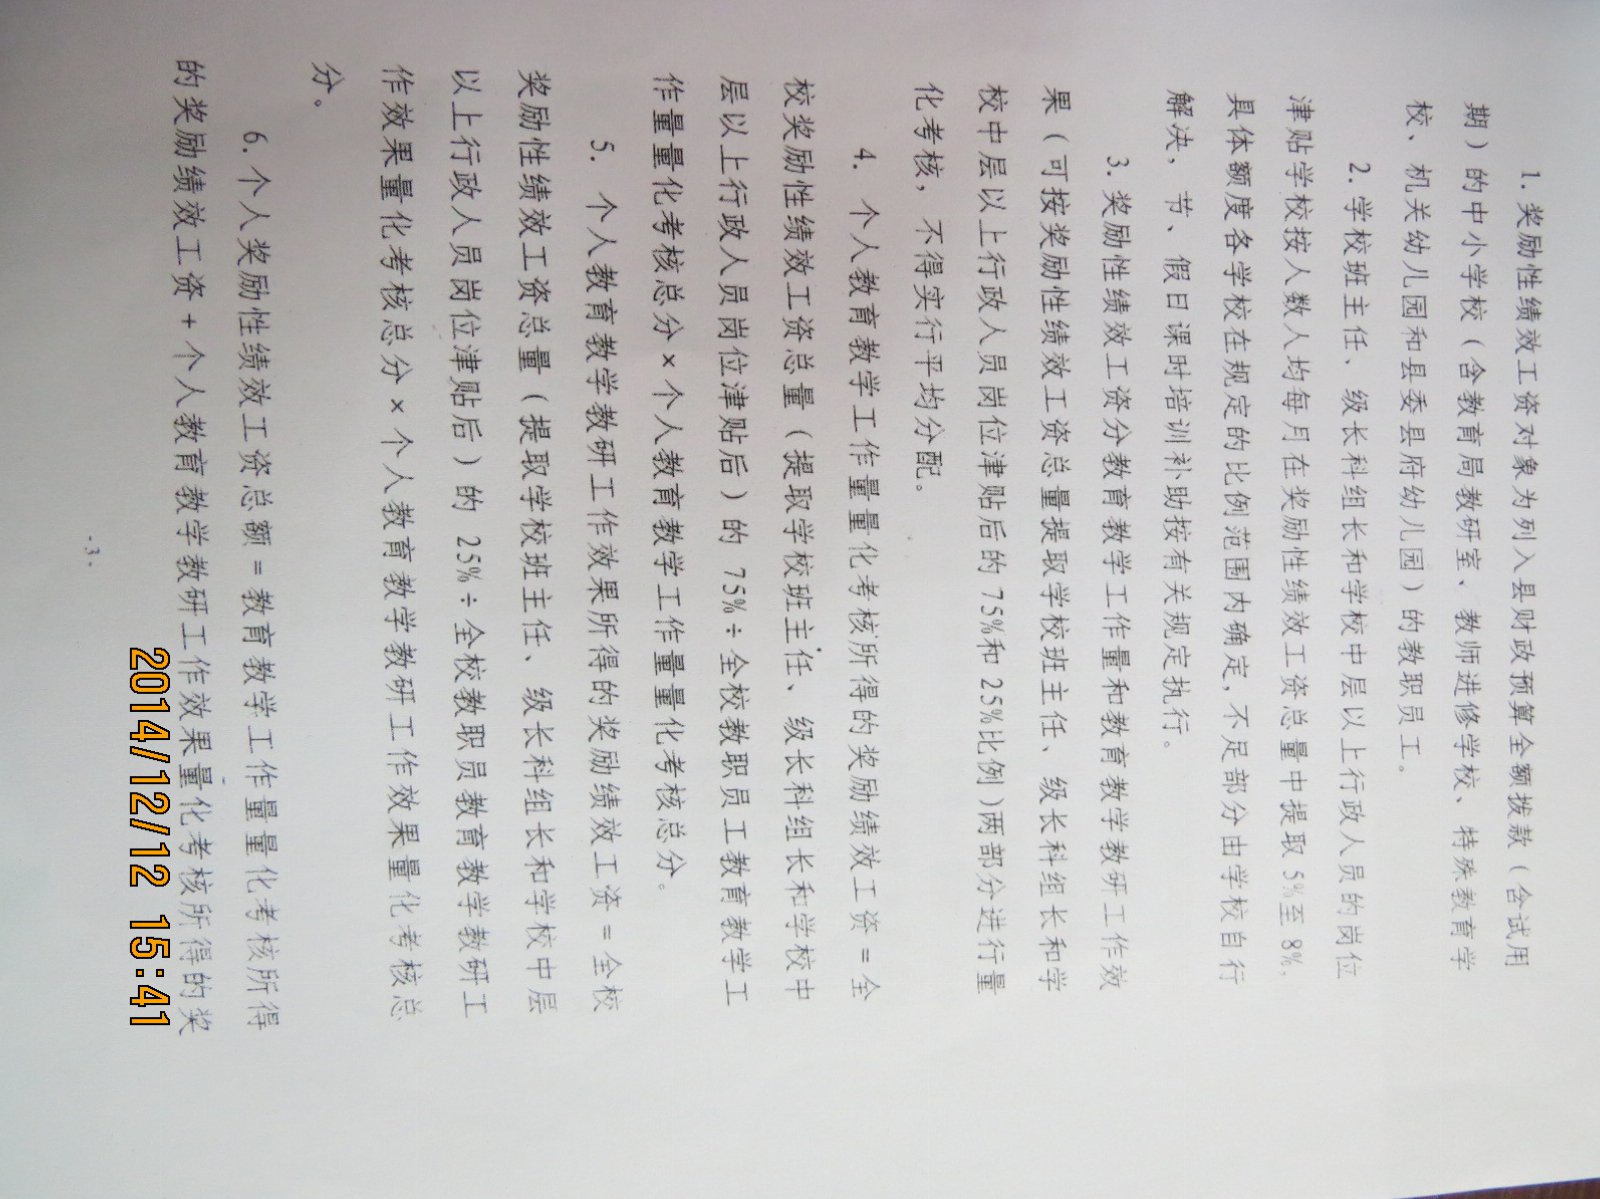 1. 奖励性绩效工资对象为列入县财政预算全额拨款（含试用
期）的中小学校（含教育局教研室、教师进修学校、特殊教育学
校、机关幼儿园和县委县府幼儿园）的教职员工。
2. 学校班主任、级长科组长和学校中层以上行政人员的岗位
津贴学校按人数人均每月在奖励性绩效工资总量中提取 5%至 8%，
具体额度各学校在规定的比例范围内确定，不足部分由学校自行
解决，节、假日课时培训补助按有关规定执行。
3. 奖励性绩效工资分教育教学工作量和教育教学教研工作效
果（可按奖励性绩效工资总量提取学校班主任、级长科组长和学
校中层以上行政人员岗位津贴后的 75%和 25%比例）两部分进行量
化考核，不得实行平均分配。
4. 个人教育教学工作量量化考核所得的奖励绩效工资 = 全
校奖励性绩效工资总量（提取学校班主任、级长科组长和学校中
层以上行政人员岗位津贴后）的 75% ÷ 全校教职员工教育教学工
作量量化考核总分 × 个人教育教学工作量量化考核总分。
5. 个人教育教学教研工作效果所得的奖励绩效工资 = 全校
奖励性绩效工资总量（提取学校班主任、级长科组长和学校中层
以上行政人员岗位津贴后）的 25% ÷ 全校教职员教育教学教研工
作效果量化考核总分 × 个人教育教学教研工作效果量化考核总
分。
6. 个人奖励性绩效工资总额 = 教育教学工作量量化考核所得
的奖励绩效工资 + 个人教育教学教研工作效果量化考核所得的奖
- 3 -
2014/12/12 15:41